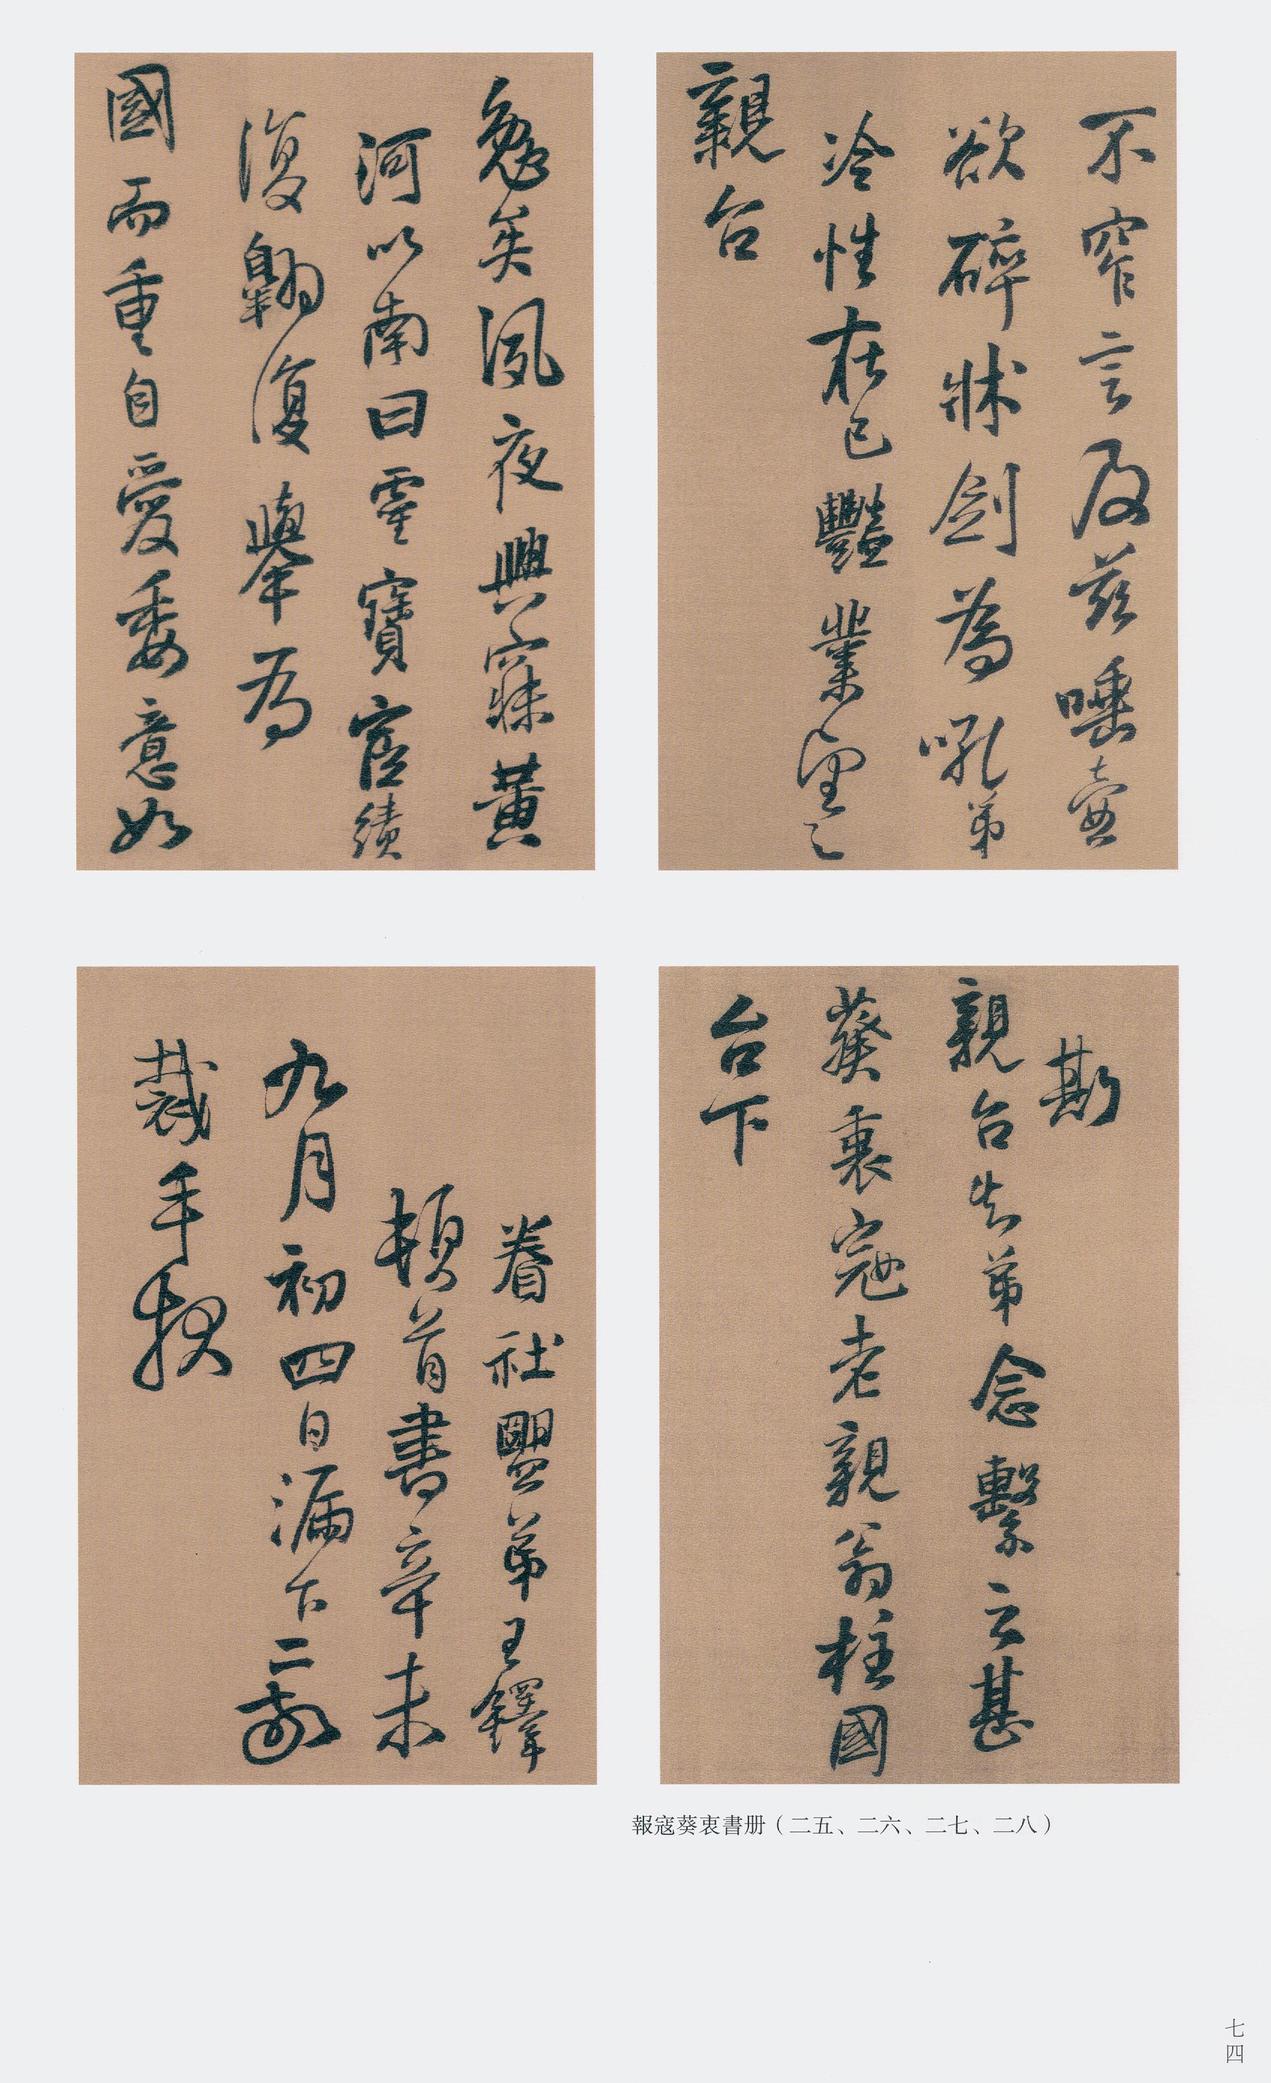 不窄言及兹唾壺
欲碎牀劍為吼弟
冷性在己豔業望之
親台
勉矣夙夜興寐黃
河以南曰靈寶宦績
復翱復舉為
國而重自愛委意如
斯
親台弟念繫云甚
葵衷寇老親翁柱國
台下
眷社盟弟王鐸
頓首書辛未
九月初四日漏下二
裁手
報寇葵衷書册（二五、二六、二七、二八）
七四